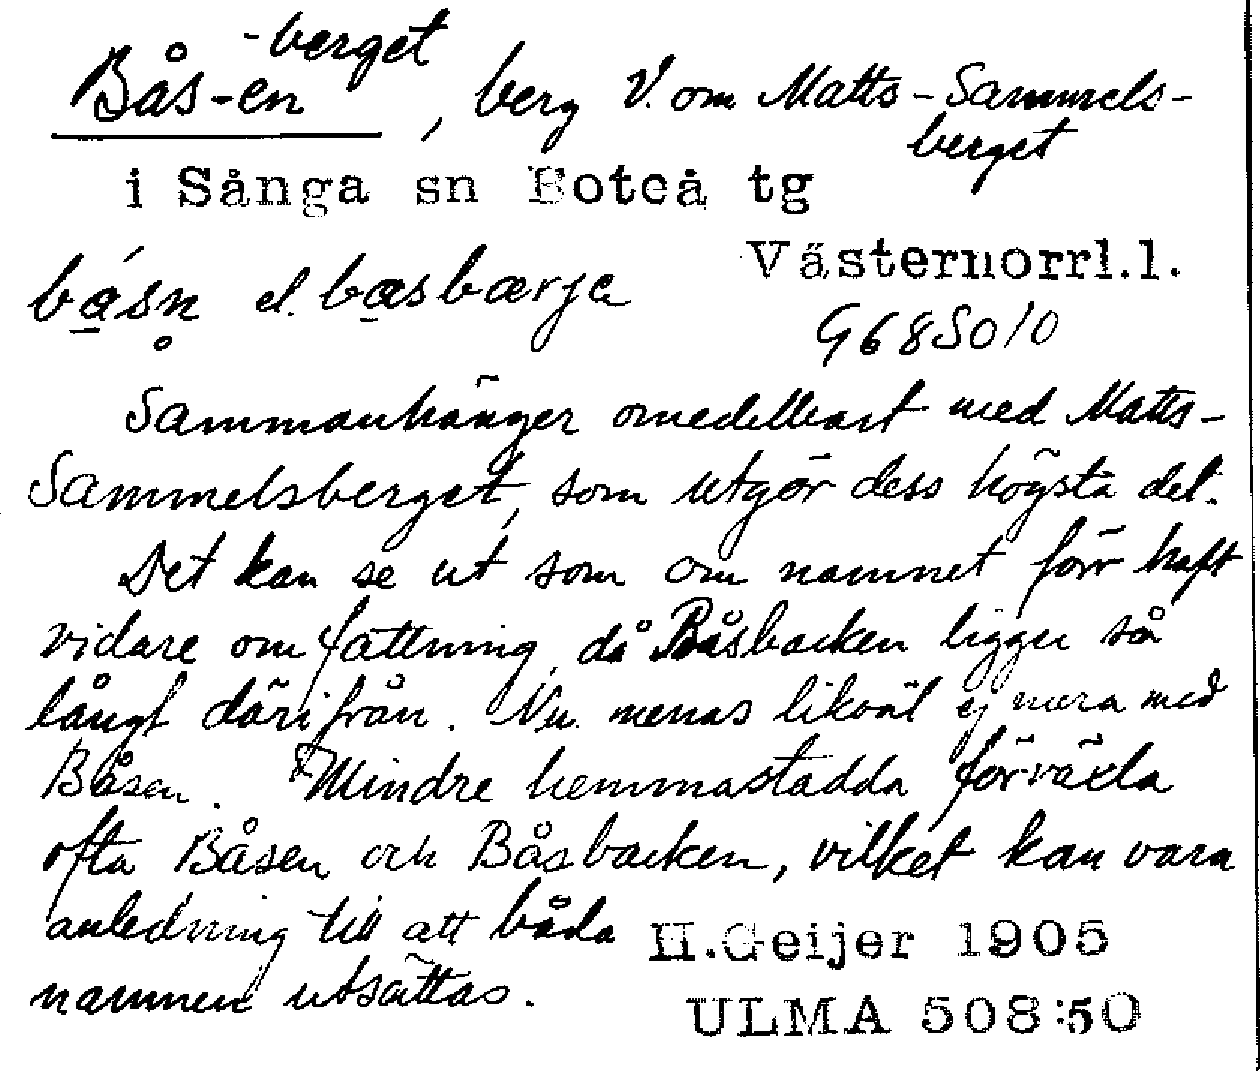 -berget
Bås-en, berg V. om Matts-Sammels-
berget
i Sånga sn Boteå tg
Västernorrl.l.
båsn el. bæsbærje
G68S010
Sammanhänger omedelbart med Matts-
Sammelsberget, som utgör dess högsta del.
Det kan se ut som om namnet förr haft
vidare omfattning, då Båsbacken ligger så
långt därifrån. Nu menas likväl ej mera med
Båsen. Mindre hemmastadda förväxla
ofta Båsen och Båsbacken, vilket kan vara
anledning till att båda
namnen utsättas.
H.Geijer 1905
ULMA 508:50